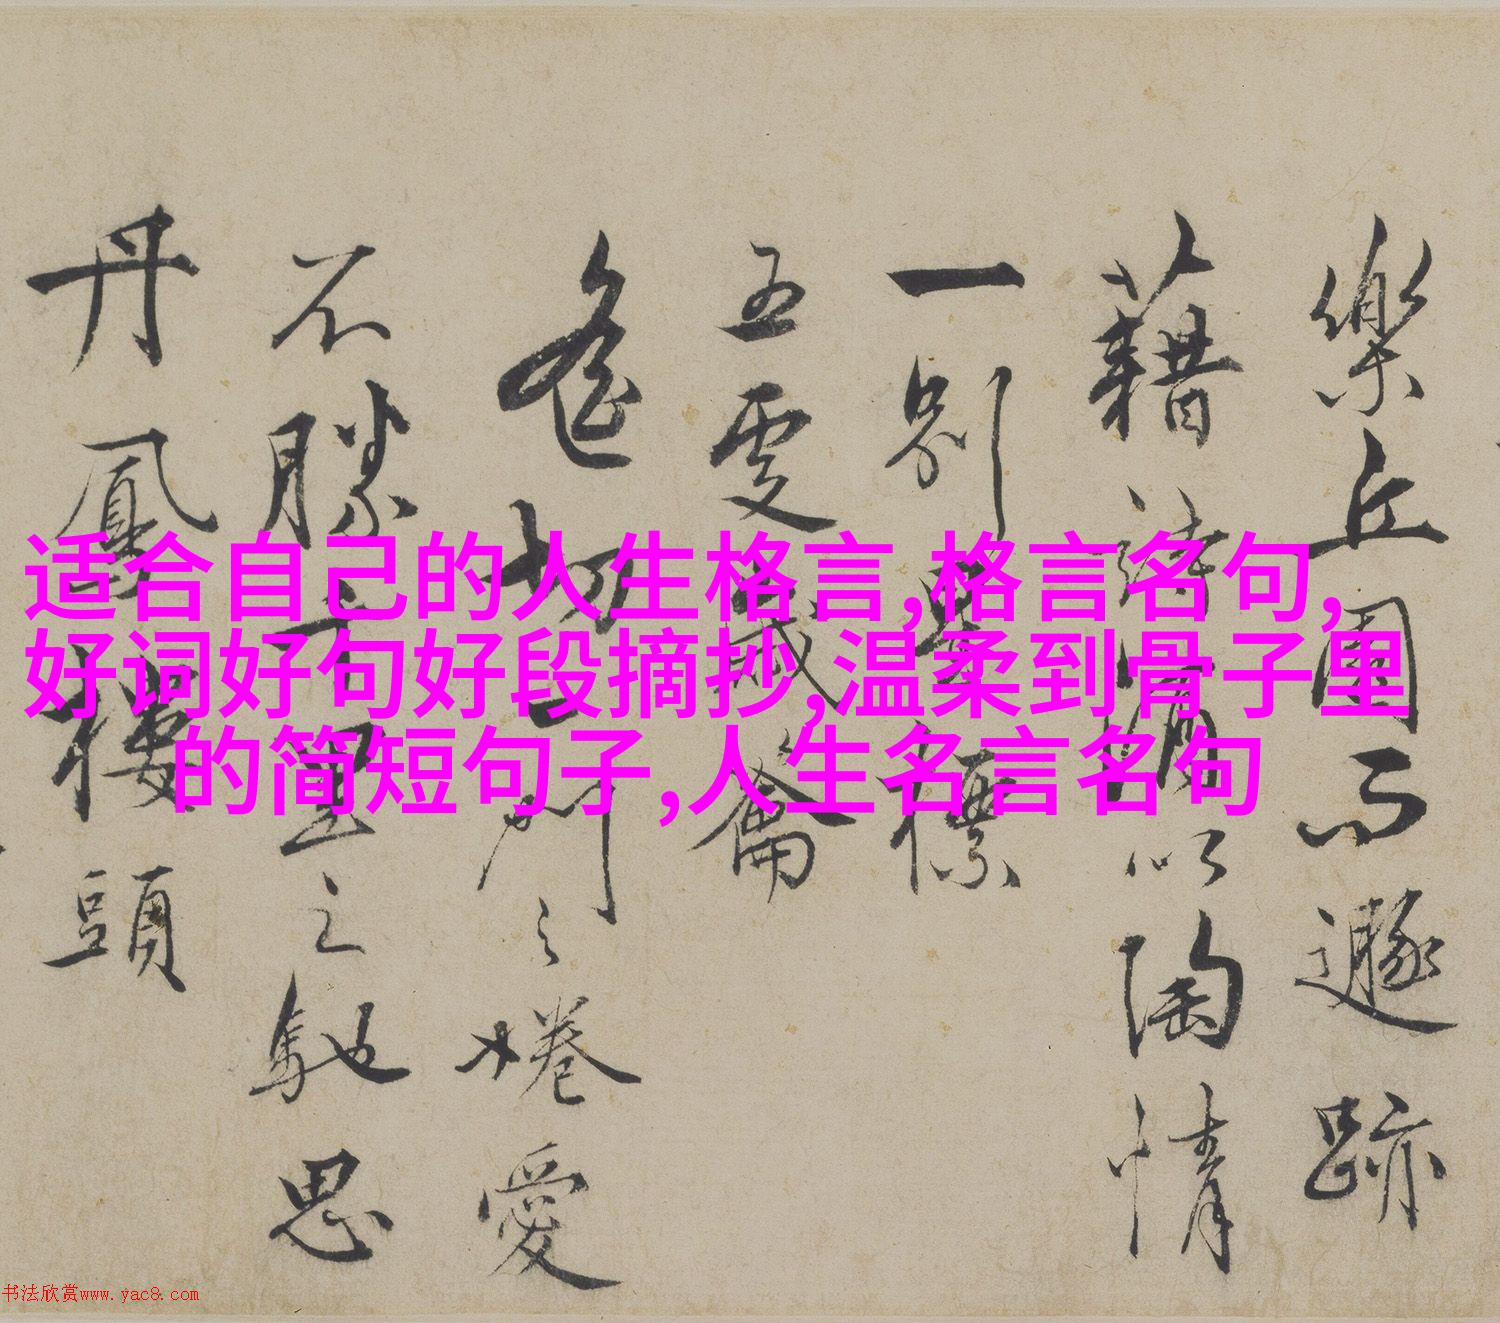 樂丘園而遯跡
藉詩酒以陶情
一別豐標
五更歲籥
切門之惓愛
不勝千里之馳思
丹鳳樓頭
适合自己的人生格言,格言名句,
好词好句好段摘抄,温柔到骨子里
的简短句子,人生名言名句
书法欣赏www.yac8.com